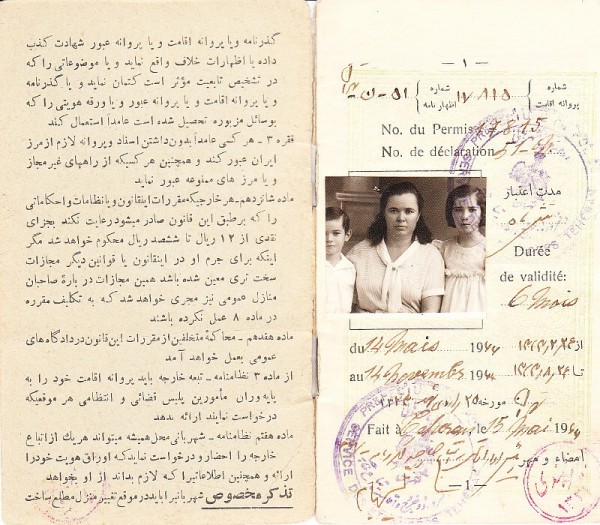 گذرنامه و یا پروانه اقامت و یا پروانه عبور شهادت کذب
داده یا اظهارات خلاف واقع نماید و یا موضوعاتی را که
در تشخیص تابعیت مؤثر است کتمان نماید و یا گذرنامه
و یا پروانه اقامت و یا پروانه عبور و یا ورقه هویتی را که
بوسائل مزبوره تحصیل شده است عامداً استعمال کند
فقره ۳ - هر کسی عامداً بدون داشتن اسناد و پروانه لازم از مرز
ایران عبور کند و همچنین هر کسیکه از راههای غیر مجاز
و یا مرز های ممنوعه عبور نماید
ماده شانزدهم - هر خارجیکه مقررات اینقانون و یا نظامات و احکاماتی
را که بر طبق این قانون صادر میشود رعایت نکند بجزای
نقدی از ۱۲ ریال تا ششصد ریال محکوم خواهد شد مگر
اینکه برای جرم او در اینقانون یا قوانین دیگر مجازات
سخت تری معین شده باشد همین مجازات در بارۀ صاحبان
منازل عمومی نیز مجری خواهد شد که به تکلیف مقرره
در ماده ۸ عمل نکرده باشند
ماده هفدهم - محاکمۀ متخلفین از مقررات این قانون در دادگاه های
عمومی بعمل خواهد آمد
از ماده ۳ نظامنامه - تبعه خارجه باید پروانه اقامت خود را به
پایه وران مأمورین پلیس قضائی و انتظامی هر موقعیکه
درخواست نمایند ارائه بدهد
ماده هفتم نظامنامه - شهربانی محل همیشه میتواند هر یک از اتباع
خارجه را احضار و درخواست نماید که اوراق هویت خود را
ارائه و همچنین اطلاعاتیرا که لازم بداند از او بخواهد
تذکر مخصوص شهربانیرا باید در موقع تغییر منزل مطلع ساخت
- ۱ -
شماره پروانه اقامت
شماره اظهارنامه
۱۷۸۱۵
No. du Permis 17815
No. de déclaration
مدت اعتبار
Durée
de validité:
6 Mois
du 14 Mais 1944
au 14 Novembre 1944
از ۱۳۲۳/۲/۲۴
تا ۱۳۲۳/۸/۲۴
مورخه
Fait à Téhéran le 15 Mai 1944
امضاء و مهر
- 1 -